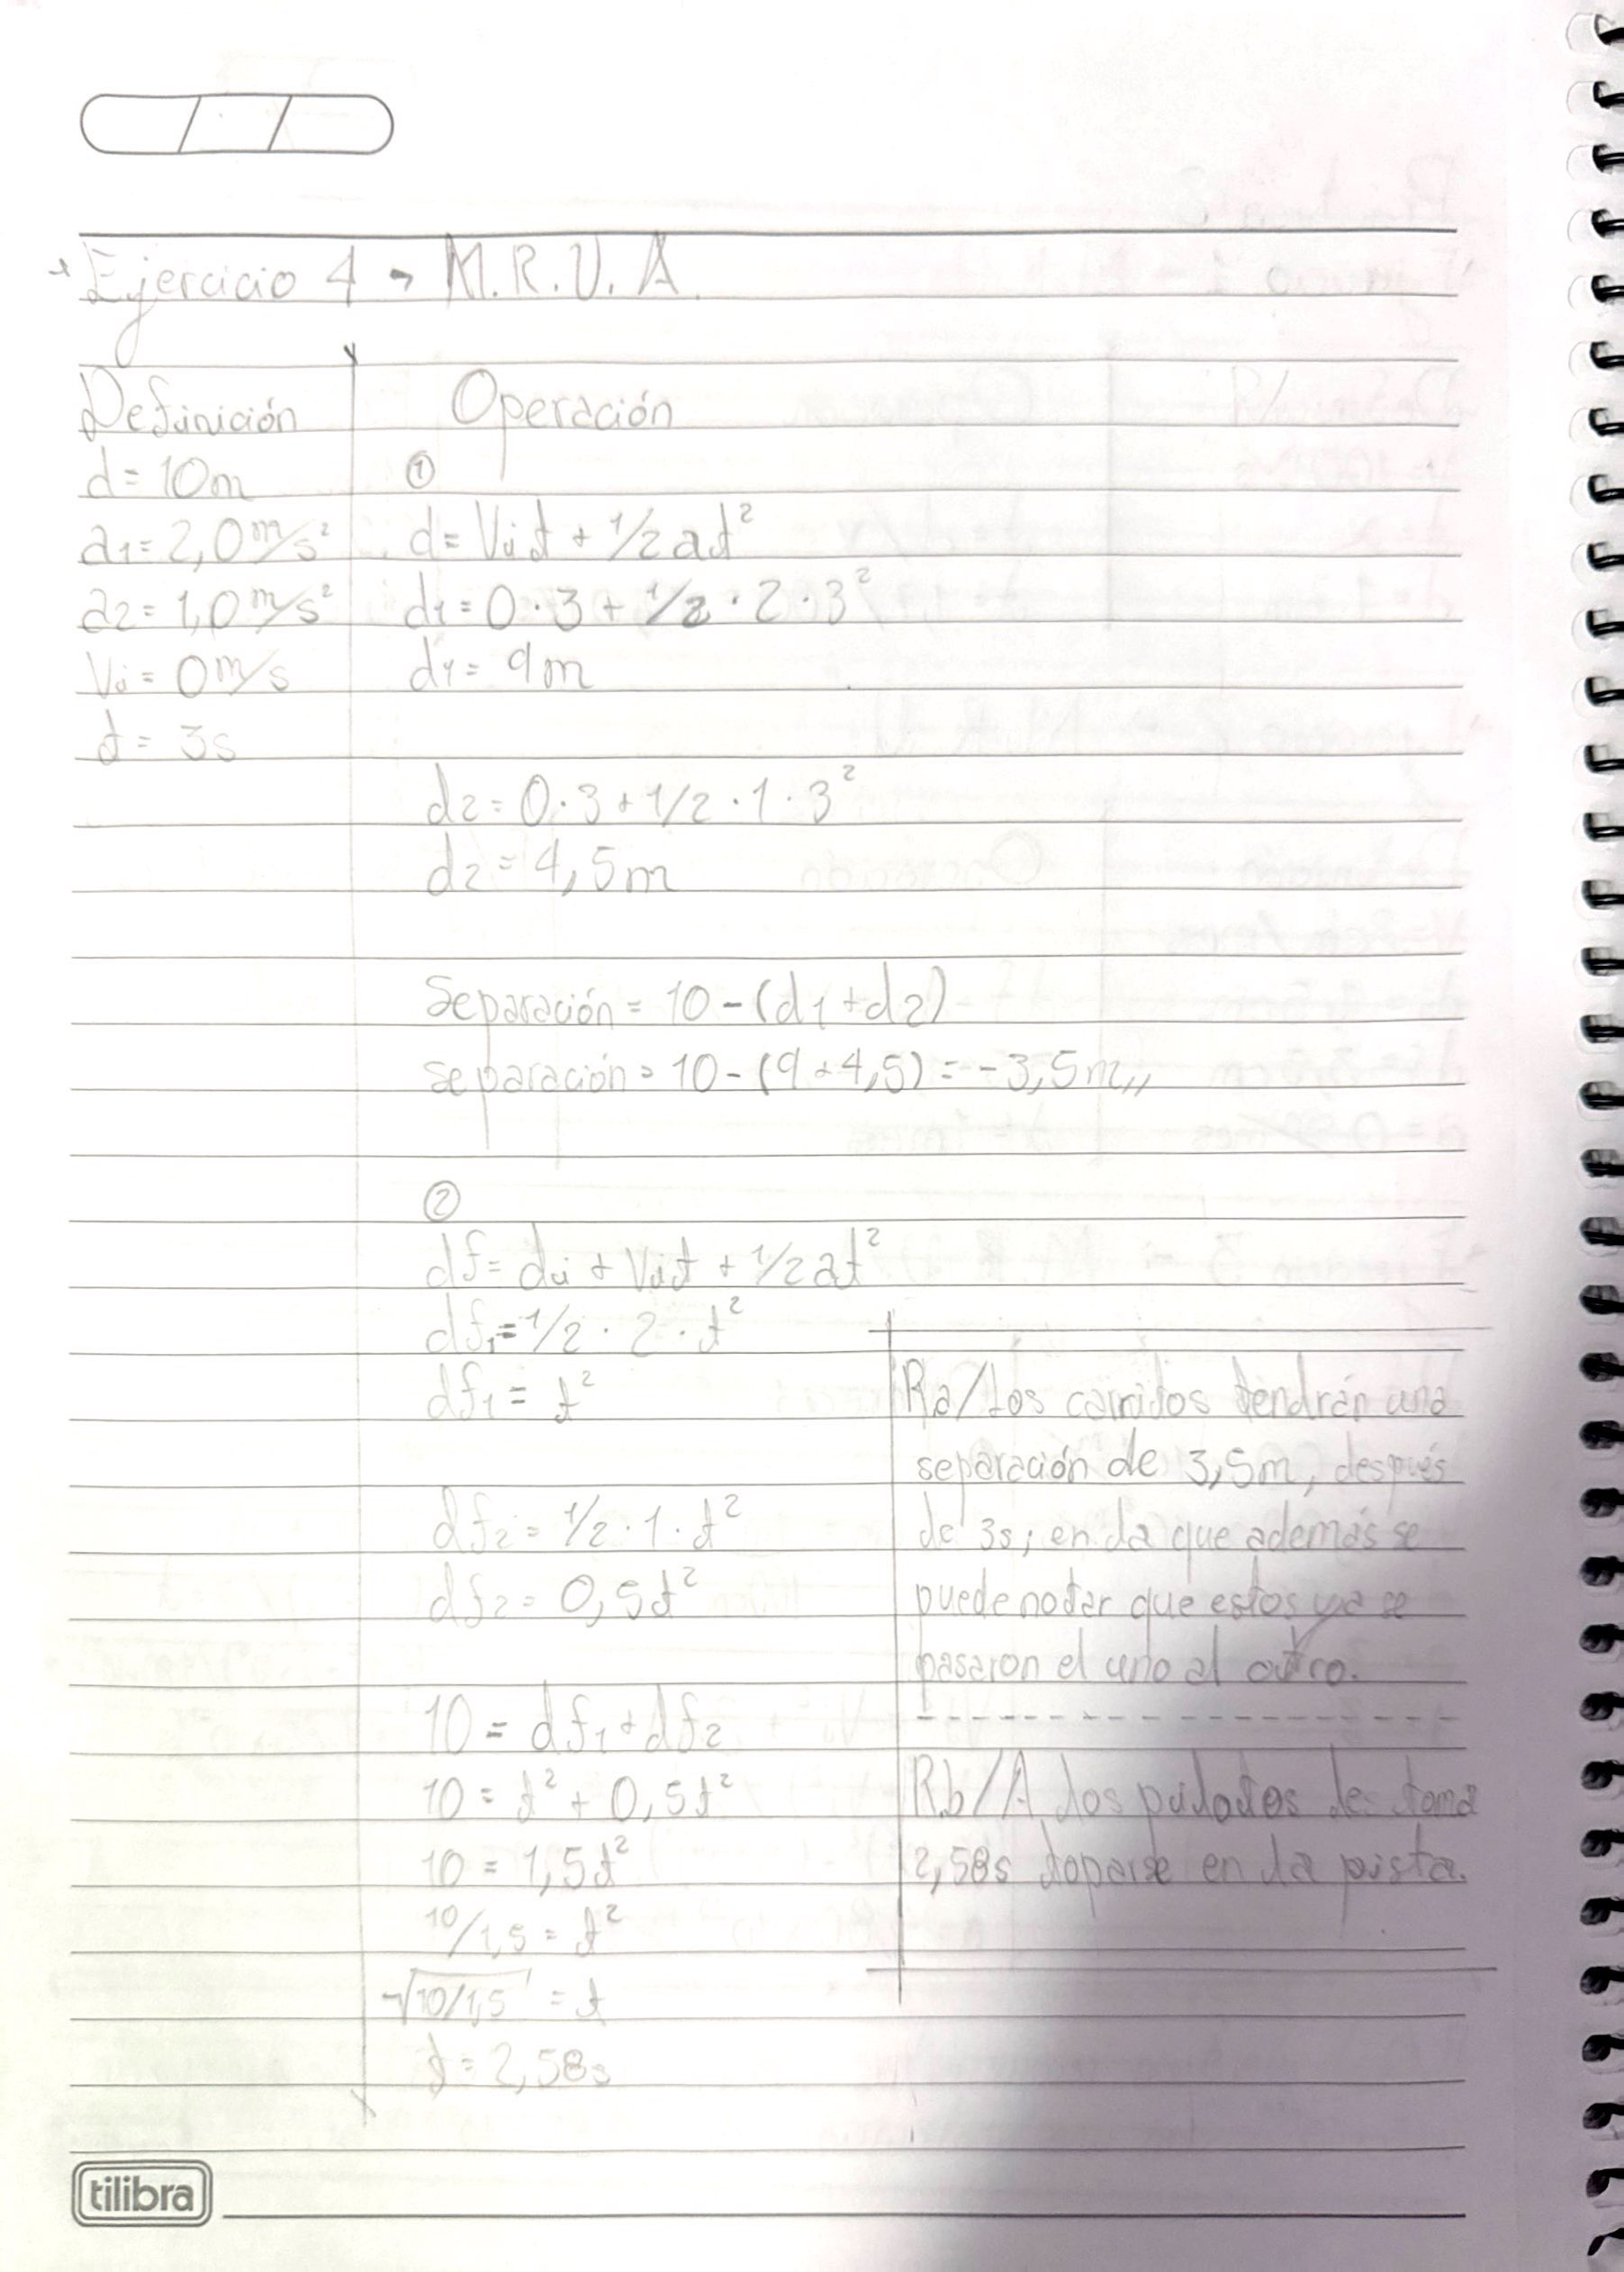 * Ejercicio 4 → M.R.U.A.
Definición
Operación
d = 10m
a1 = 2,0 m/s²
a2 = 1,0 m/s²
Vi = 0 m/s
t = 3s
①
d = Vit + 1/2 at²
d1 = 0 · 3 + 1/2 · 2 · 3²
d1 = 9m
d2 = 0 · 3 + 1/2 · 1 · 3²
d2 = 4,5m
Separación = 10 - (d1 + d2)
separación = 10 - (9 + 4,5) = -3,5m,,
②
df = di + Vit + 1/2 at²
df1 = 1/2 · 2 · t²
df1 = t²
df2 = 1/2 · 1 · t²
df2 = 0,5t²
10 = df1 + df2
10 = t² + 0,5t²
10 = 1,5t²
10/1,5 = t²
√10/1,5 = t
t = 2,58s
Ra/Los carritos tendrán una
separación de 3,5m, después
de 3s; en la que además se
puede notar que estos ya se
pasaron el uno al otro.
Rb/A los pilotos le toma
2,58s toparse en la pista.
tilibra